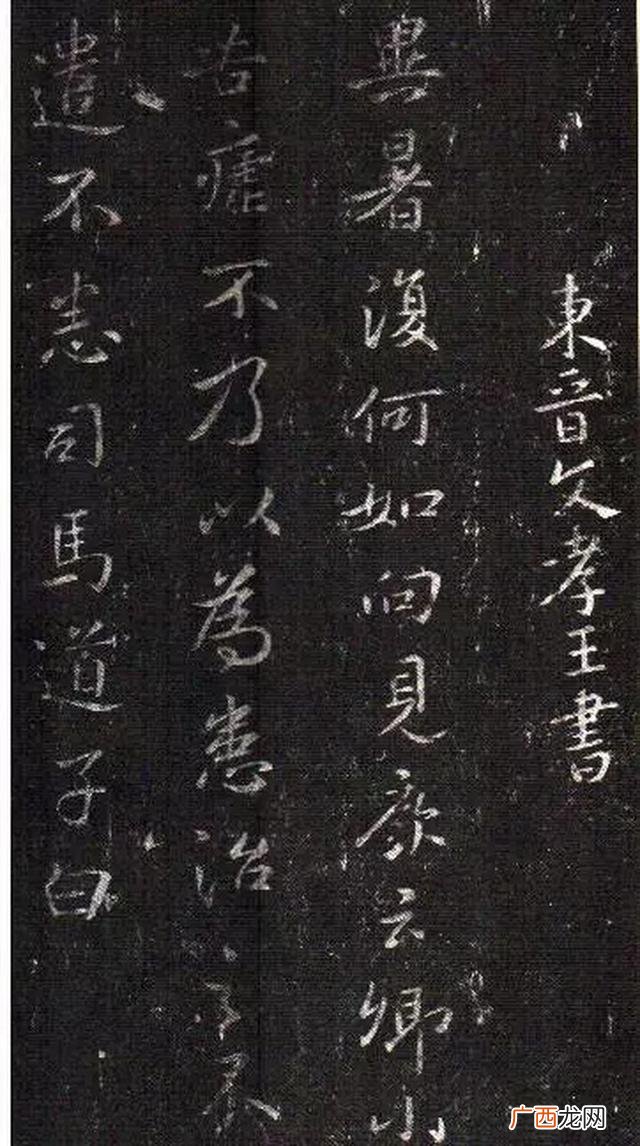 東晉文孝王書
異暑復何如向見䖍云卿小
苦瘧不乃以為患治
遣不悉司馬道子白
广西龙网